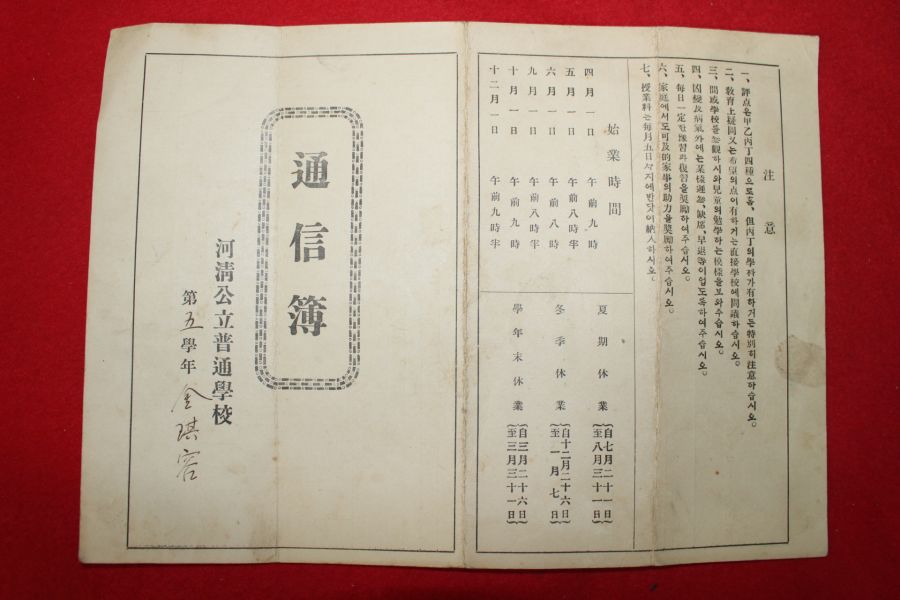 注意
一、評点은甲乙丙丁四種으로홈、但丙丁의學科가有하거든特別히注意하십시오。
二、敎育上疑問又는希望의点이有하거든直接學校에問議하십시오。
三、間或學校를參觀하시와兒童의勉學하는模樣을보와주십시오。
四、因變及病氣外에는某樣遲參、缺席、早退等이업도록하여주십시오。
五、每日一定한豫習과復習을奬勵하여주십시오。
六、家庭에서도可及的家學의助力을奬勵하여주십시오。
七、授業料는每月五日싸지에반닷이納入하시오。
始業時間
四月一日 午前九時
五月一日 午前八時半
六月一日 午前八時
九月一日 午前八時半
十月一日 午前九時
十二月一日 午前九時半
夏期休業 自七月二十一日 至八月三十一日
冬季休業 自十二月二十六日 至一月七日
學年末休業 自三月二十六日 至三月三十一日
通信簿
河淸公立普通學校
第五學年 金琪容